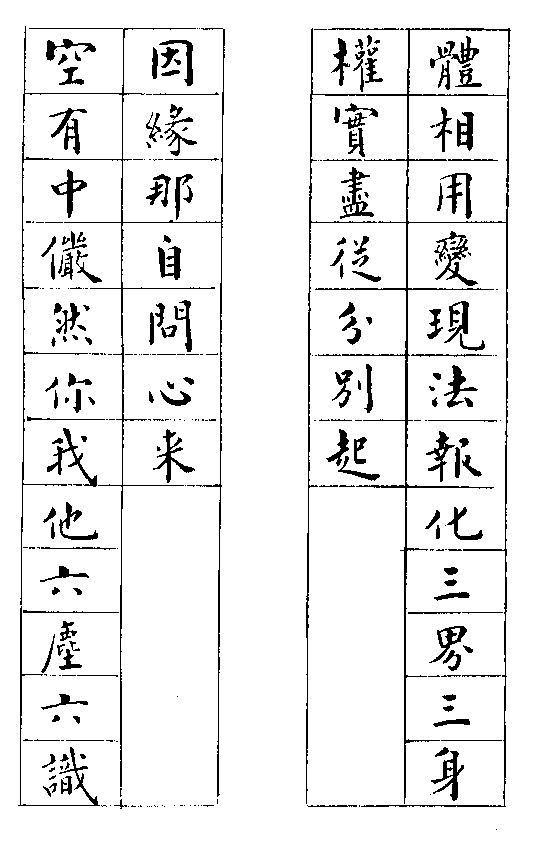 體相用變現法報化三界三身
權實盡從分別起
空有中儼然你我他六塵六識
因緣那自問心来